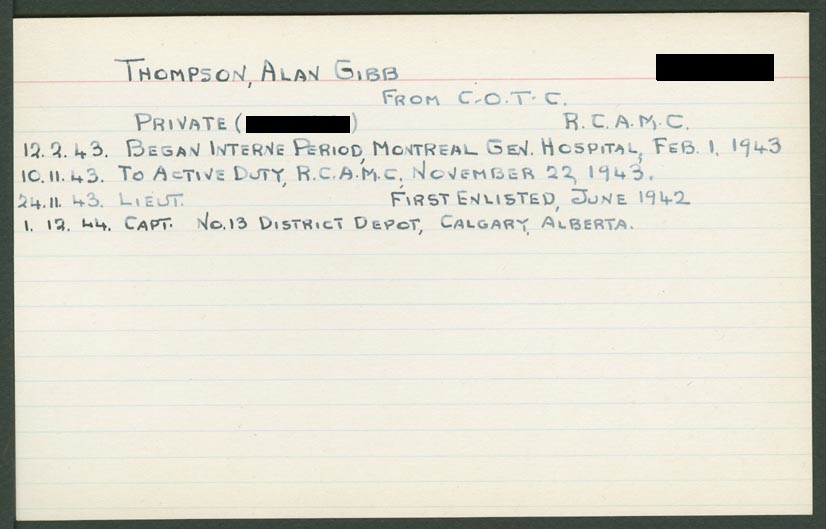 THOMPSON, ALAN GIBB
FROM C.O.T.C.
PRIVATE ( ) R.C.A.M.C.
12.2.43. BEGAN INTERNE PERIOD, MONTREAL GEN. HOSPITAL, FEB. 1, 1943
10.11.43. TO ACTIVE DUTY, R.C.A.M.C, NOVEMBER 22, 1943.
24.11.43. LIEUT. FIRST ENLISTED, JUNE 1942
1. 12. 44. CAPT. NO.13 DISTRICT DEPOT, CALGARY, ALBERTA.